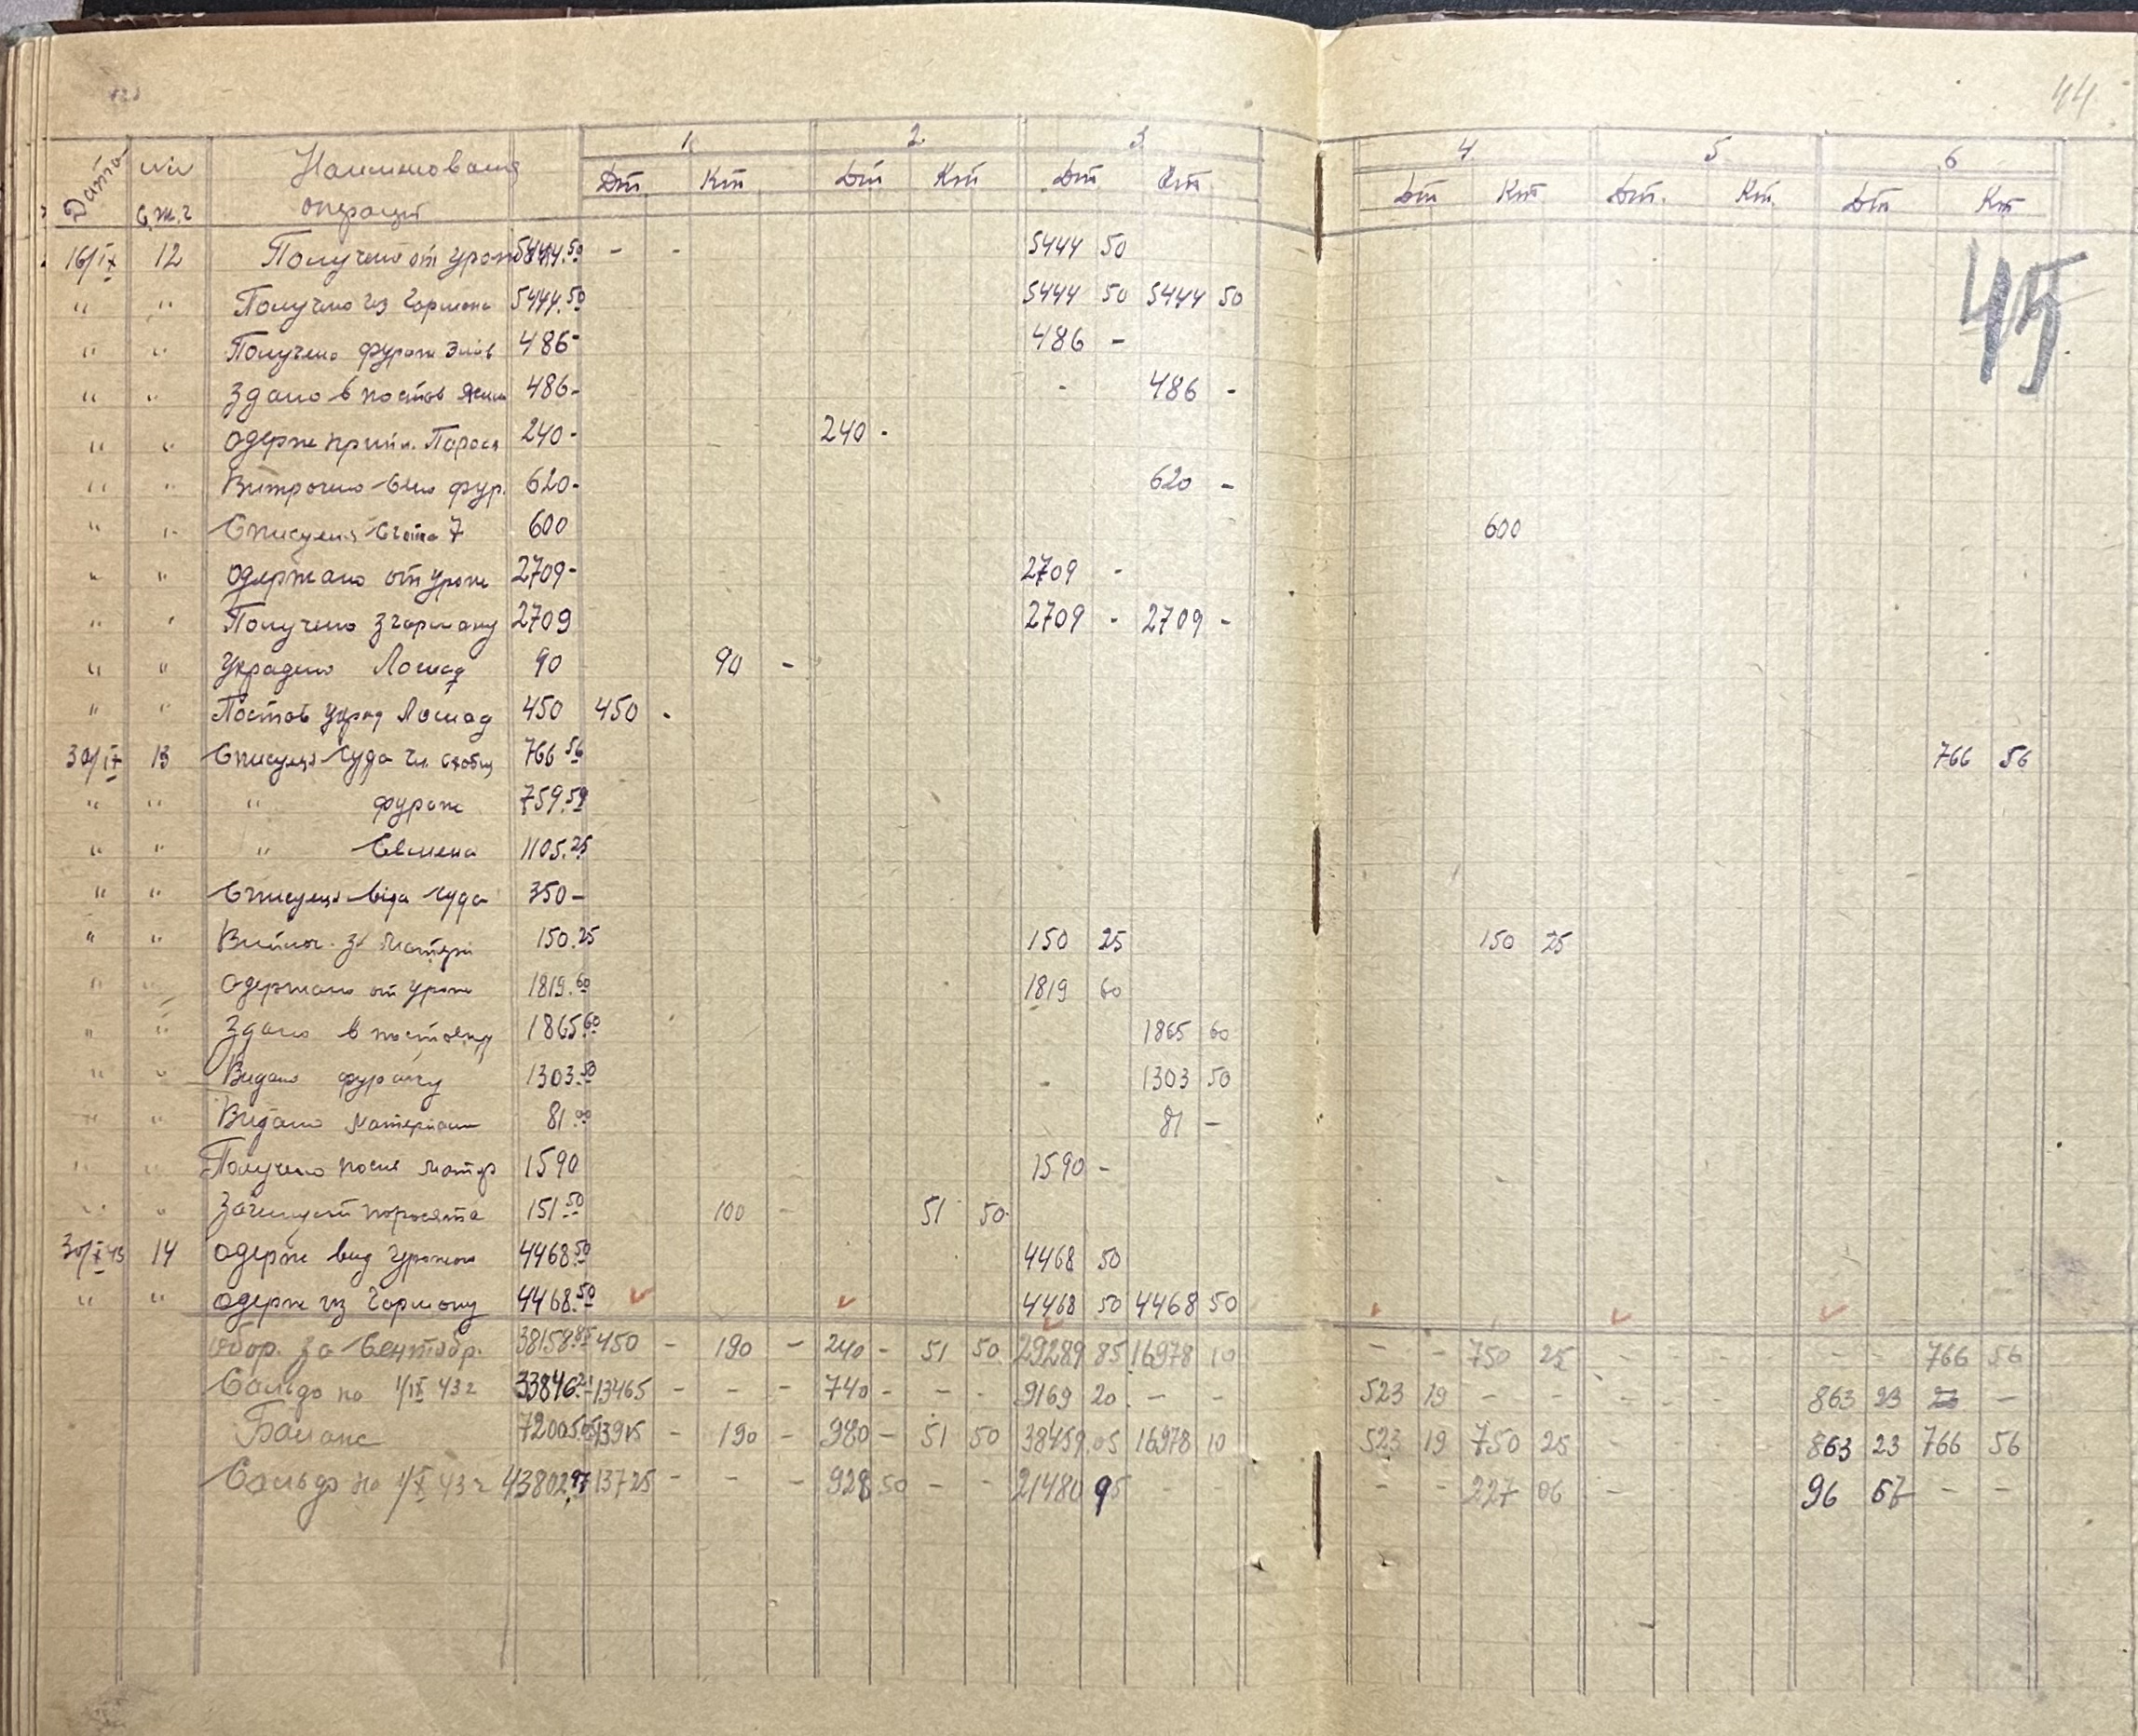 44
45
1. 2. 3. 4. 5. 6.
Дата №№ с.ж.г Наименования операций Дт Кт Дт Кт Дт Кт Дт Кт Дт. Кт. Дт Кт
16/IX 12 Получено от урож 5444.50 - - 5444 50
" " Получено из Гармона 5444.50 5444 50 5444 50
" " Получено фураж 486- 486 -
" " Здано в постав 486- - 486 -
" " Одерж припл. Порося 240- 240 -
" " Витрочено Сено фур. 620- 620 -
" " Списуется Счота 7 600 600
" " Одержано от урож 2709- 2709 -
" " Получено з гармону 2709 2709 - 2709 -
" " Украдено Лошад 90 90 -
" " Постав украд Лошад 450 450 -
30/IX 13 Списуется 766 56 766 56
" " " фураж 759.59
" " " Семена 1105.25
" " Списуется 350-
" " за Матери 150.25 150 25 150 25
" " Одержано от урож 1819.60 1819 60
" " Здано в поставку 1865 60 1865 60
" " Видано фуражу 1303.50 1303 50
" " Видано Материали 81.00 81 -
" " Получено после матер 1590 1590 -
" " поросята 151 50 100 - 51 50
30/X 43 14 Одерж вид Урожаю 4468.50 4468 50
" " Одерж из Гармону 4468.50 4468 50 4468 50
Обор. за Сентябр. 38158.85 450 - 190 - 240 - 51 50 29289 85 16978 10 - - 750 25 - - - - - - 766 56
Сальдо на 1/IX 43 г 33846.21 13465 - - - 740 - - - 9169 20 - - 523 19 - - - - - - 863 23 -
Баланс 72005.05 13915 - 190 - 980 - 51 50 38459 05 16978 10 523 19 750 25 - - - - 863 23 766 56
Сальдо на 1/X 43 г 43802,97 13725 - - - 928 50 - - 21480 95 - - - - 227 06 - - - - 96 67 - -